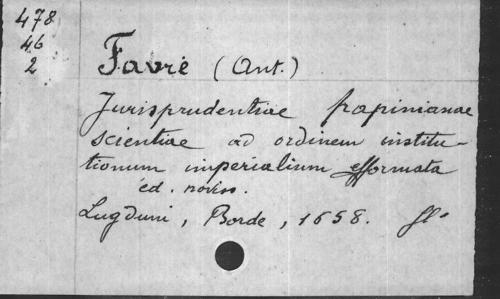 478
46
2
Favre (Ant.)
Jurisprudentiae papinianae
scientiae ad ordinem institu-
tionum imperialium efformata
éd. noviss.
Lugduni, Borde, 1658. fl°